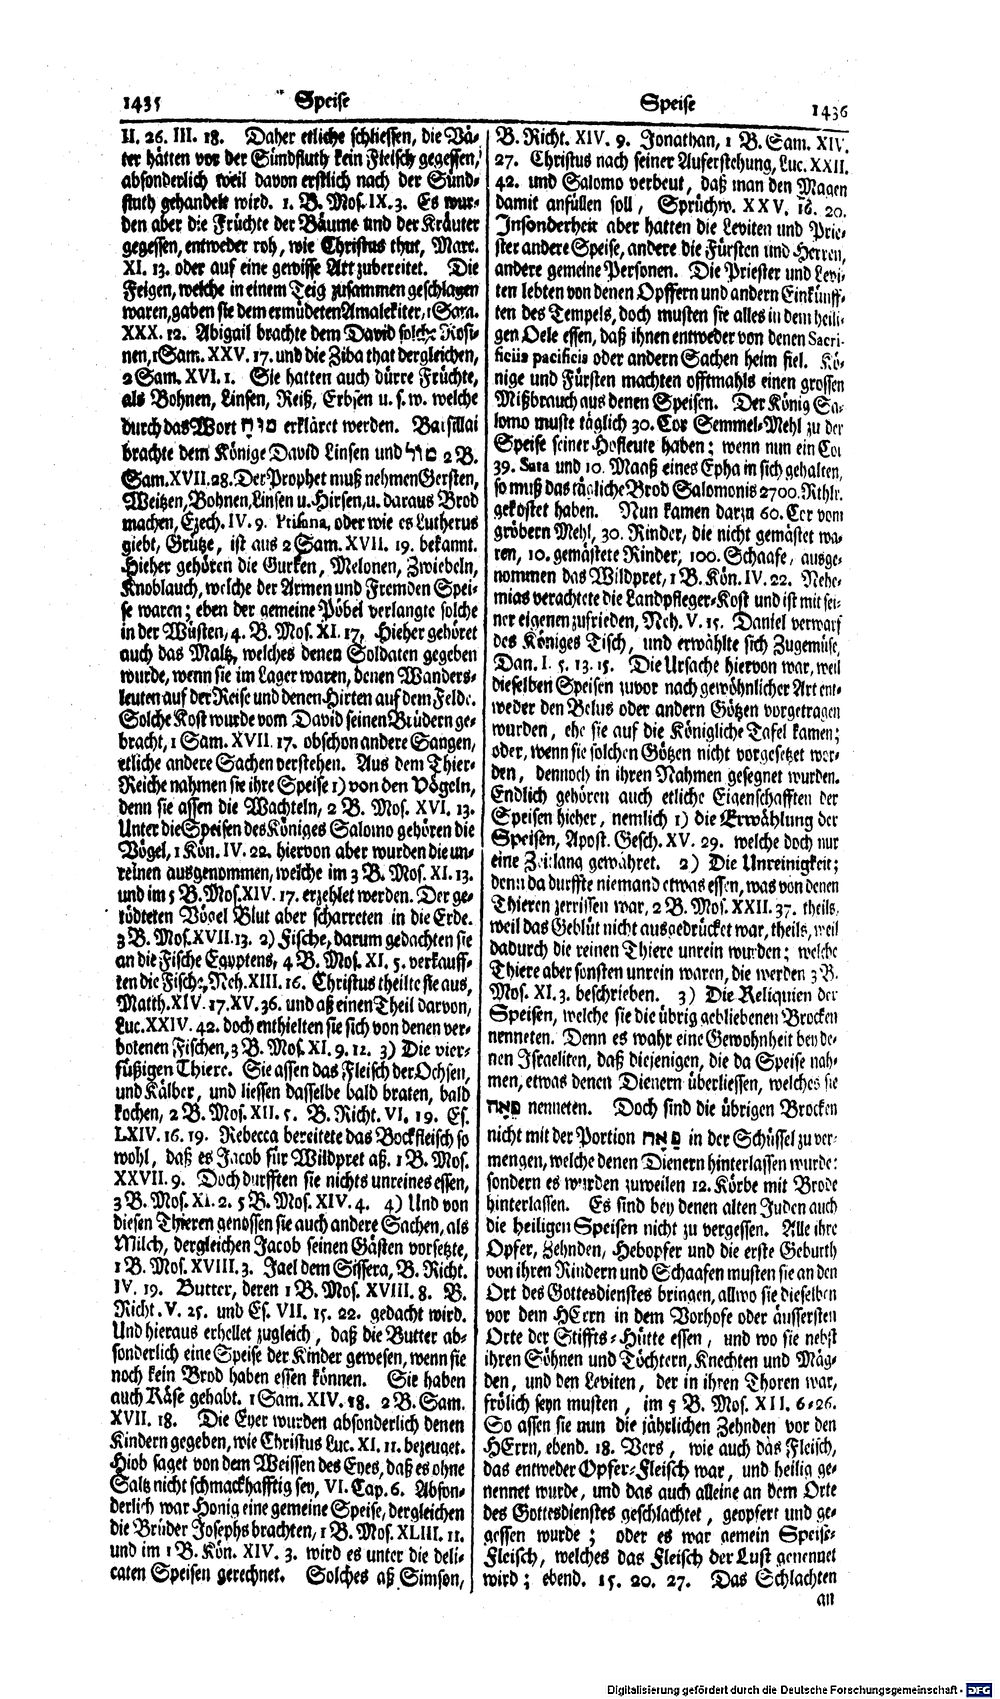 1435 Speise
Speise 1436
II. 26. III. 18. Daher etliche schliessen, die Vä-
ter hätten vor der Sündfluth kein Fleisch gegessen,
absonderlich weil davon erstlich nach der Sünd-
fluth gehandelt wird. 1. B. Mos. IX. 3. Es wur-
den aber die Früchte der Bäume und der Kräuter
gegessen, entweder roh, wie Christus thut, Marc.
XI. 13. oder auf eine gewisse Art zubereitet. Die
Feigen, welche in einem Teig zusammen geschlagen
waren, gaben sie dem ermüdeten Amalekiter, 1 Sam.
XXX. 12. Abigail brachte dem David solche Rosi-
nen, 1 Sam. XXV. 17. und die Ziba that dergleichen,
2 Sam. XVI. 1. Sie hatten auch dürre Früchte,
als Bohnen, Linsen, Reiß, Erbsen u. s. w. welche
durch das Wort erkläret werden. Barsillai
brachte dem Könige David Linsen und 2 B.
Sam. XVII. 28. Der Prophet muß nehmen Gersten,
Weitzen, Bohnen, Linsen u. Hirsen, u. daraus Brod
machen, Ezech. IV. 9. Ptisana, oder wie es Lutherus
giebt, Grütze, ist aus 2 Sam. XVII. 19. bekannt.
Hieher gehören die Gurken, Melonen, Zwiebeln,
Knoblauch, welche der Armen und Fremden Spei-
se waren; eben der gemeine Pöbel verlangte solche
in der Wüsten, 4. B. Mos. XI. 17. Hieher gehöret
auch das Maltz, welches denen Soldaten gegeben
wurde, wenn sie im Lager waren, denen Wanders-
leuten auf der Reise und denen Hirten auf dem Felde.
Solche Kost wurde vom David seinen Brüdern ge-
bracht, 1 Sam. XVII. 17. obschon andere Sangen,
etliche andere Sachen verstehen. Aus dem Thier-
Reiche nahmen sie ihre Speise 1) von den Vögeln,
denn sie assen die Wachteln, 2 B. Mos. XVI. 13.
Unter die Speisen des Königes Salomo gehören die
Vögel, 1 Kön. IV. 22. hiervon aber wurden die un-
reinen ausgenommen, welche im 3 B. Mos. XI. 13.
und im 5 B. Mos. XIV. 17. erzehlet werden. Der ge-
tödteten Vögel Blut aber scharreten in die Erde.
3 B. Mos. XVII. 13. 2) Fische, darum gedachten sie
an die Fische Egyptens, 4 B. Mos. XI. 5. verkauff-
ten die Fische, Neh. XIII. 16. Christus theilte sie aus,
Matth. XIV. 17. XV. 36. und aß einen Theil davon,
Luc. XXIV. 42. doch enthielten sie sich von denen ver-
botenen Fischen, 3 B. Mos. XI. 9. 12. 3) Die vier-
füßigen Thiere. Sie assen das Fleisch der Ochsen,
und Kälber, und liessen dasselbe bald braten, bald
kochen, 2 B. Mos. XII. 5. B. Richt. VI. 19. Es.
LXIV. 16. 19. Rebecca bereitete das Bockfleisch so
wohl, daß es Jacob für Wildpret aß. 1 B. Mos.
XXVII. 9. Doch durfften sie nichts unreines essen,
3 B. Mos. XI. 2. 5 B. Mos. XIV. 4. 4) Und von
diesen Thieren genossen sie auch andere Sachen, als
Milch, dergleichen Jacob seinen Gästen vorsetzte,
1 B. Mos. XVIII. 3. Jael dem Sissera, B. Richt.
IV. 19. Butter, deren 1 B. Mos. XVIII. 8. B.
Richt. V. 25. und Es. VII. 15. 22. gedacht wird.
Und hieraus erhellet zugleich, daß die Butter ab-
sonderlich eine Speise der Kinder gewesen, wenn sie
noch kein Brod haben essen können. Sie haben
auch Käse gehabt. 1 Sam. XIV. 18. 2 B. Sam.
XVII. 18. Die Eyer wurden absonderlich denen
Kindern gegeben, wie Christus Luc. XI. 11. bezeuget.
Hiob saget von dem Weissen des Eyes, daß es ohne
Saltz nicht schmackhafftig sey, VI. Cap. 6. Abson-
derlich war Honig eine gemeine Speise, dergleichen
die Brüder Josephs brachten, 1 B. Mos. XLIII. 11.
und im 1 B. Kön. XIV. 3. wird es unter die deli-
caten Speisen gerechnet. Solches aß Simson,
B. Richt. XIV. 9. Jonathan, 1 B. Sam. XIV.
27. Christus nach seiner Auferstehung, Luc. XXII.
42. und Salomo verbeut, daß man den Magen
damit anfüllen soll, Sprüchw. XXV. 16. 20.
Insonderheit aber hatten die Leviten und Prie-
ster andere Speise, andere die Fürsten und Herren,
andere gemeine Personen. Die Priester und Levi-
ten lebten von denen Opffern und andern Einkünff-
ten des Tempels, doch musten sie alles in dem heili-
gen Oele essen, daß ihnen entweder von denen Sacri-
ficiis pacificis oder andern Sachen heim fiel. Kö-
nige und Fürsten machten offtmahls einen grossen
Mißbrauch aus denen Speisen. Der König Sa-
lomo muste täglich 30. Cor Semmel-Mehl zu der
Speise seiner Hofleute haben; wenn nun ein Cor
39. Sata und 10. Maaß eines Epha in sich gehalten,
so muß das tägliche Brod Salomonis 2700. Rthlr.
gekostet haben. Nun kamen darzu 60. Cor vom
gröbern Mehl, 30. Rinder, die nicht gemästet wa-
ren, 10. gemästete Rinder, 100. Schaafe, ausge-
nommen das Wildpret, 1 B. Kön. IV. 22. Nehe-
mias verachtete die Landpfleger-Kost und ist mit sei-
ner eigenen zufrieden, Neh. V. 15. Daniel verwarf
des Königes Tisch, und erwählte sich Zugemüse,
Dan. I. 5. 13. 15. Die Ursache hiervon war, weil
dieselben Speisen zuvor nach gewöhnlicher Art ent-
weder den Belus oder andern Götzen vorgetragen
wurden, ehe sie auf die Königliche Tafel kamen;
oder, wenn sie solchen Götzen nicht vorgesetzet wor-
den, dennoch in ihren Nahmen gesegnet wurden.
Endlich gehören auch etliche Eigenschafften der
Speisen hieher, nemlich 1) die Erwählung der
Speisen, Apost. Gesch. XV. 29. welche doch nur
eine Zeitlang gewähret. 2) Die Unreinigkeit;
denn da durffte niemand etwas essen, was von denen
Thieren zerrissen war, 2 B. Mos. XXII. 37. theils,
weil das Geblüt nicht ausgedrücket war, theils, weil
dadurch die reinen Thiere unrein wurden; welche
Thiere aber sonsten unrein waren, die werden 3 B.
Mos. XI. 3. beschrieben. 3) Die Reliquien der
Speisen, welche sie die übrig gebliebenen Brocken
nenneten. Denn es wahr eine Gewohnheit bey de-
nen Israeliten, daß diejenigen, die da Speise nah-
men, etwas denen Dienern überliessen, welches sie
פאה nenneten. Doch sind die übrigen Brocken
nicht mit der Portion פאה in der Schüssel zu ver-
mengen, welche denen Dienern hinterlassen wurde:
sondern es wurden zuweilen 12. Körbe mit Brode
hinterlassen. Es sind bey denen alten Juden auch
die heiligen Speisen nicht zu vergessen. Alle ihre
Opfer, Zehnden, Hebopfer und die erste Geburth
von ihren Rindern und Schaafen musten sie an den
Ort des Gottesdienstes bringen, allwo sie dieselben
vor dem HErrn in dem Vorhofe oder äussersten
Orte der Stiffts-Hütte essen, und wo sie nebst
ihren Söhnen und Töchtern, Knechten und Mäg-
den, und den Leviten, der in ihren Thoren war,
frölich seyn musten, im 5 B. Mos. XII. 6-26.
So assen sie nun die jährlichen Zehnden vor den
HErrn, ebend. 18. Vers, wie auch das Fleisch,
das entweder Opfer-Fleisch war, und heilig ge-
nennet wurde, und das auch alleine an dem Orte
des Gottesdienstes geschlachtet, geopfert und ge-
gessen wurde; oder es war gemein Speis-
Fleisch, welches das Fleisch der Lust genennet
wird; ebend. 15. 20. 27. Das Schlachten
an
Digitalisierung gefördert durch die Deutsche Forschungsgemeinschaft - DFG